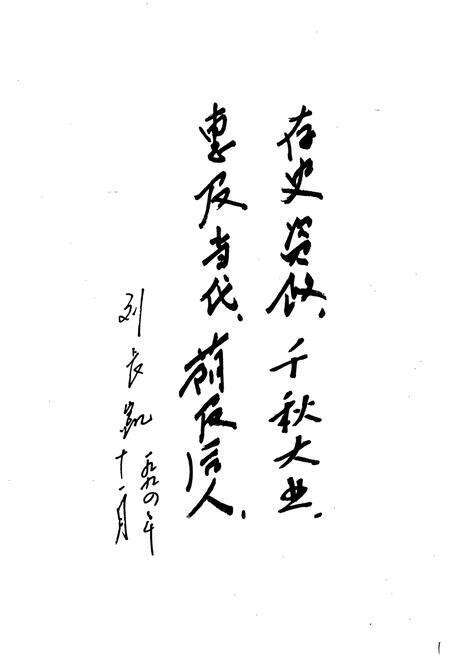 存史资政、千秋大业.
惠及当代、荫及后人.
刘长凯
一九九四年
十一月
1